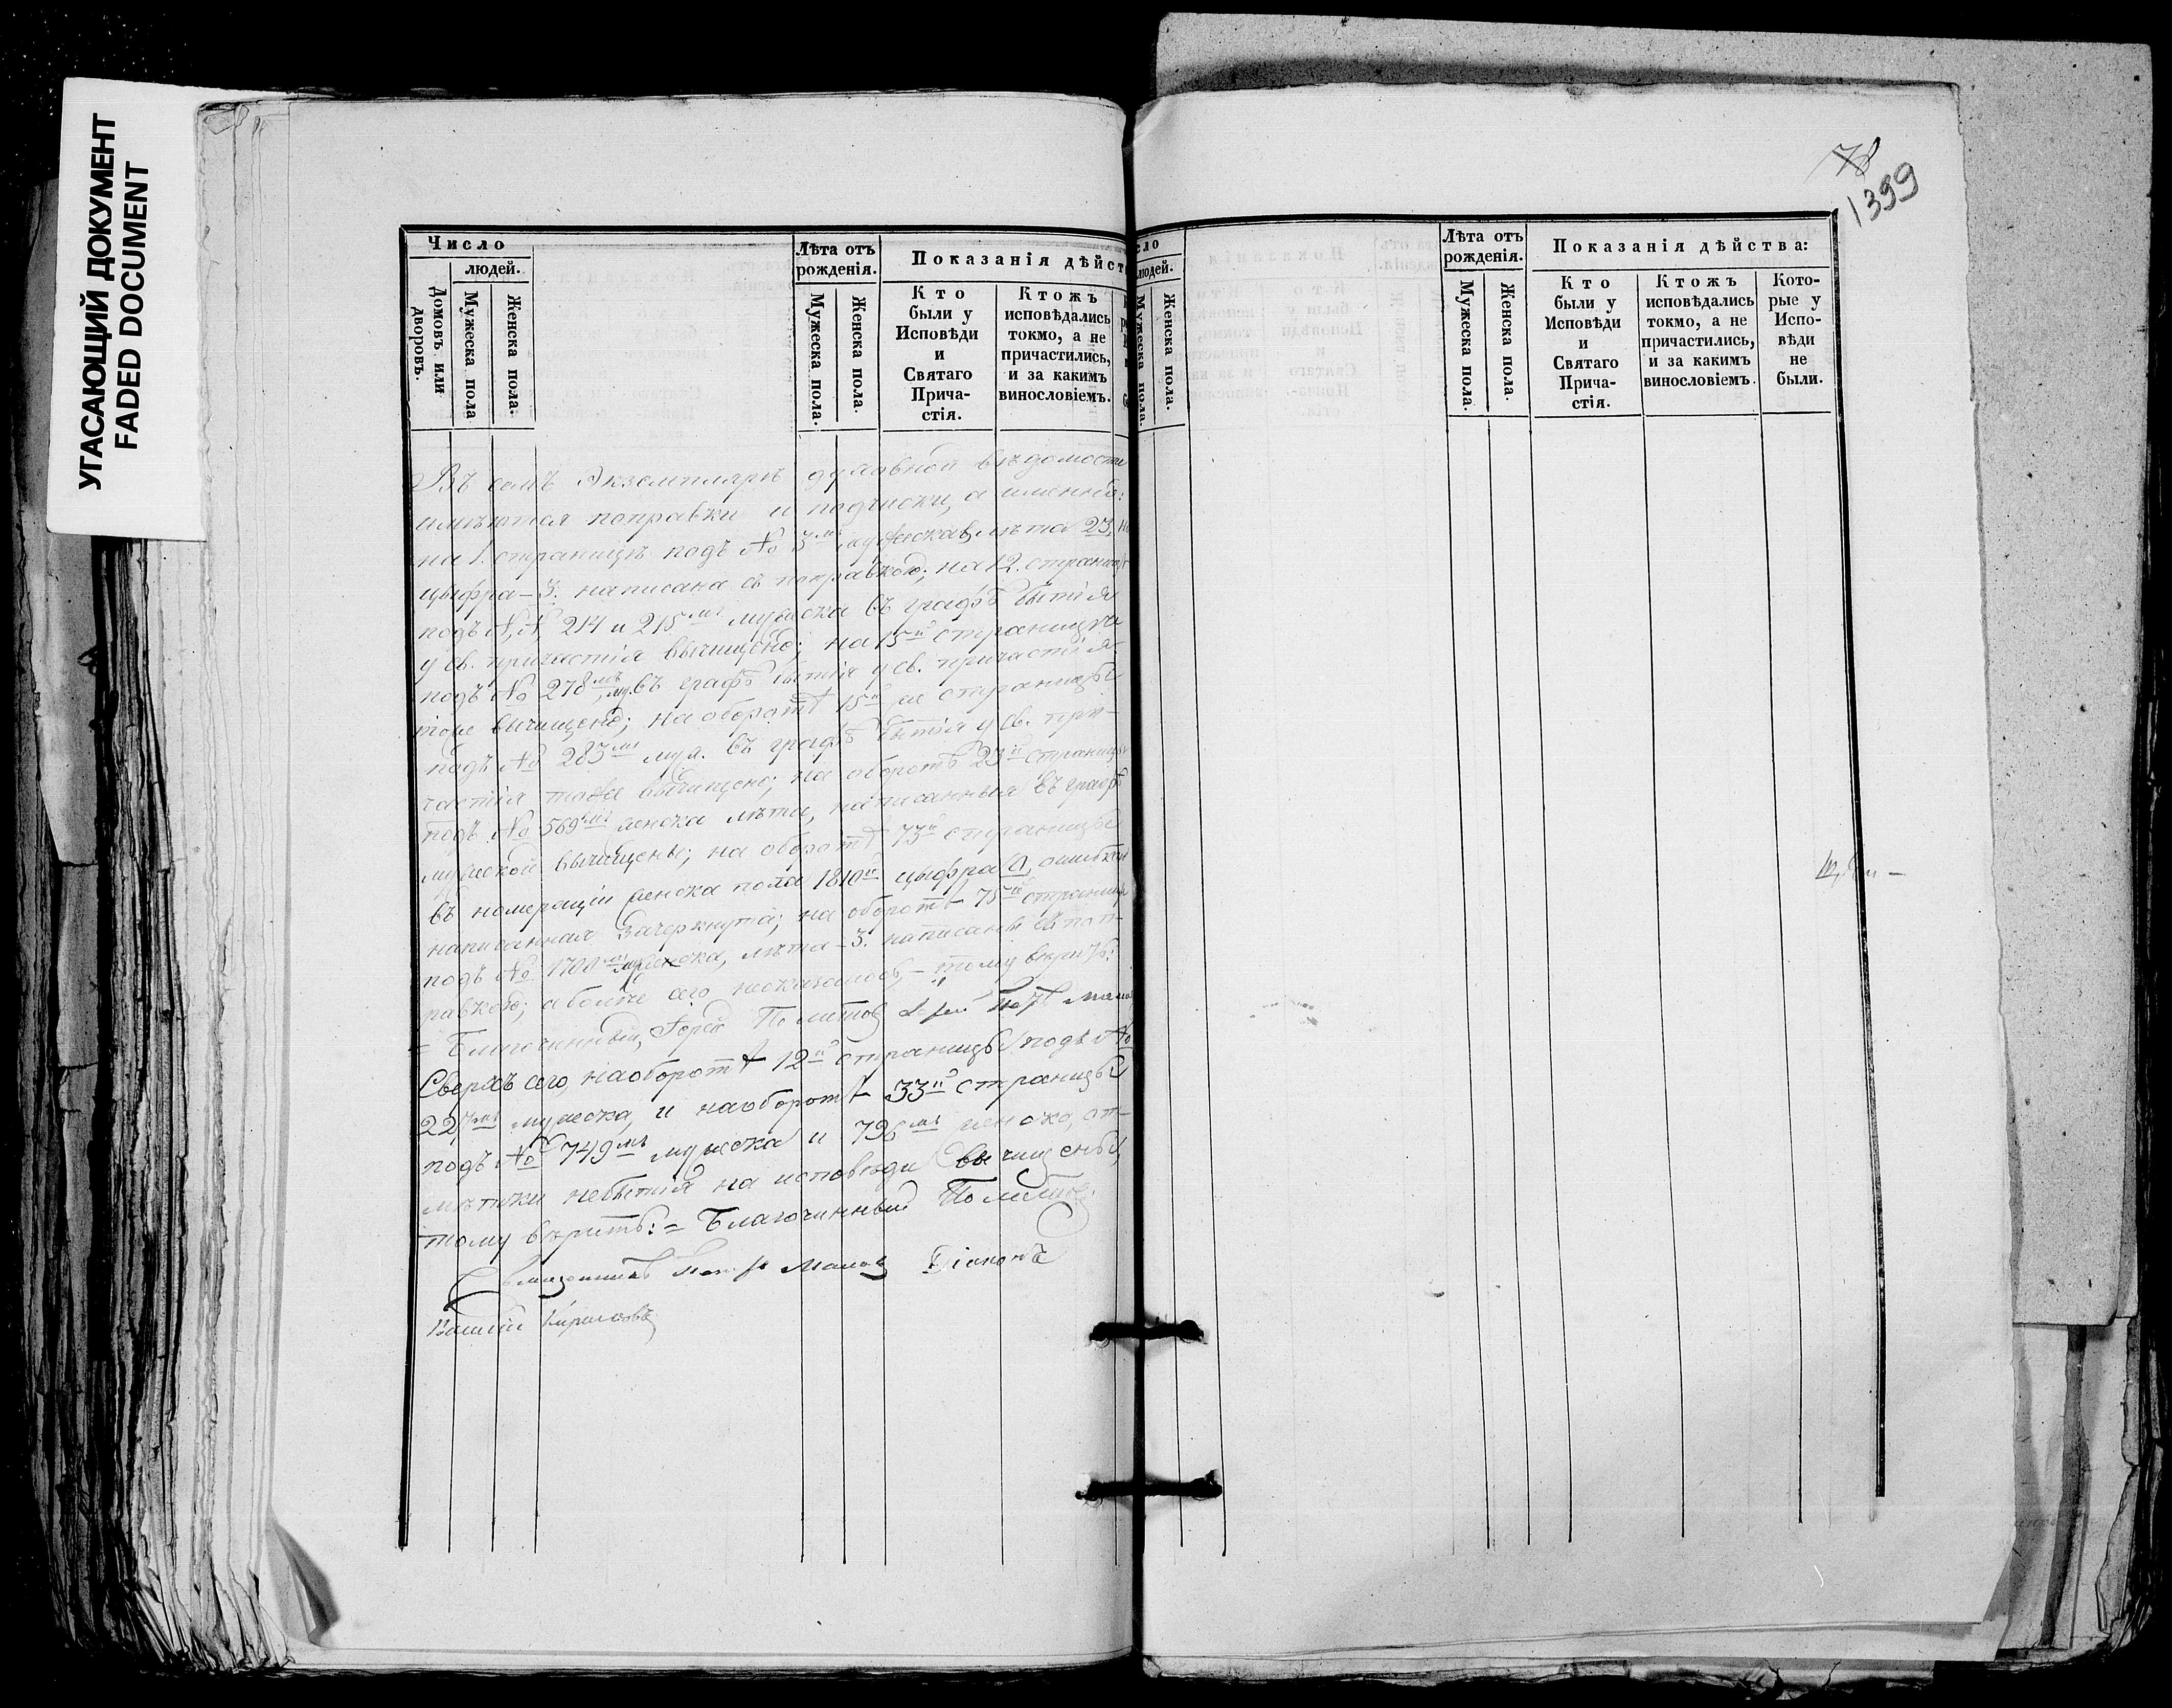 УГАСАЮЩИЙ ДОКУМЕНТ
FADED DOCUMENT
Число
людей.
Домовъ или дворовъ.
Мужеска пола
Женска пола.
Лѣта отъ рожденія.
Мужеска пола.
Женска пола.
Показанія дѣйст
Кто были у Исповѣди и Святаго Прича-стія.
Ктожъ исповѣдались токмо, а не причастились, и за какимъ винословіемъ.
Въ семъ Экземплярѣ духовной вѣдомости
имѣются поправки и подчистки, а именно:
на 1. страницѣ подъ № 3мъ мужеска, лѣта 23,
цыфра - 3. написана съ поправкою; на 12. страницѣ
подъ №№ 214 и 215мъ мужеска въ графѣ бытія
у св. причастія вычищено; на 15й страницѣ
подъ № 278мъ муж. въ графѣ бытія у св. причастія
тоже вычищено; на оборотѣ 15й же страницы
подъ № 283мъ муж. въ графѣ бытія у св. при-
частія тоже вычищено; на оборотѣ 23й страницы
подъ № 569мъ женска лѣта, написанныя въ графѣ
мужеской вычищены; на оборотѣ 73й страницы
въ номераціи женска пола 1810й цыфра 0, ошибкою
написанная зачеркнута; на оборотѣ 75й страницы
подъ № 1700мъ мужеска, лѣта - 3. написаны съ поп-
равкою; а болѣе сего неоказалось, - тому вѣрить:
= Благочинный,
Сверхъ сего, на оборотѣ 12й страницы подъ №
227мъ мужеска, и на оборотѣ 33й страницы
подъ № 749мъ мужеска и 796мъ женска, от-
мѣтки небытія на исповѣди вычищены,
тому вѣрить: = Благочинный
Діаконъ
Василій Кириловъ
78
1399
сло
людей.
Мужеска пола.
Женска пола.
Лѣта отъ рожденія.
Мужеска пола.
Женска пола.
Показанія дѣйства:
Кто были у Исповѣди и Святаго Прича-стія.
Ктожъ исповѣдались токмо, а не причастились, и за какимъ винословіемъ.
Кото-рые у Испо-вѣди не были.